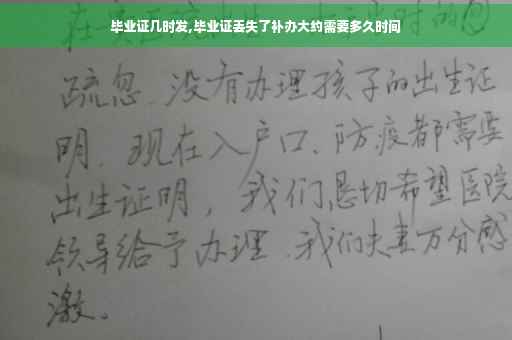 毕业证几时发,毕业证丢失了补办大约需要多久时间
疏忽.没有办理孩子的出生证
明.现在入户口、防疫都需要
出生证明，我们恳切希望医院
领导给予办理.我们夫妻万分感
激。